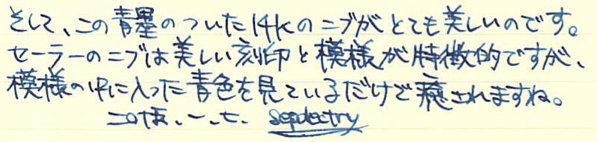 そして、この青墨のついた14Kのニブがとても美しいのです。
セーラーのニブは美しい刻印と模様が特徴的ですが、
模様の中に入った青色を見ているだけで癒されますね。
二〇一七